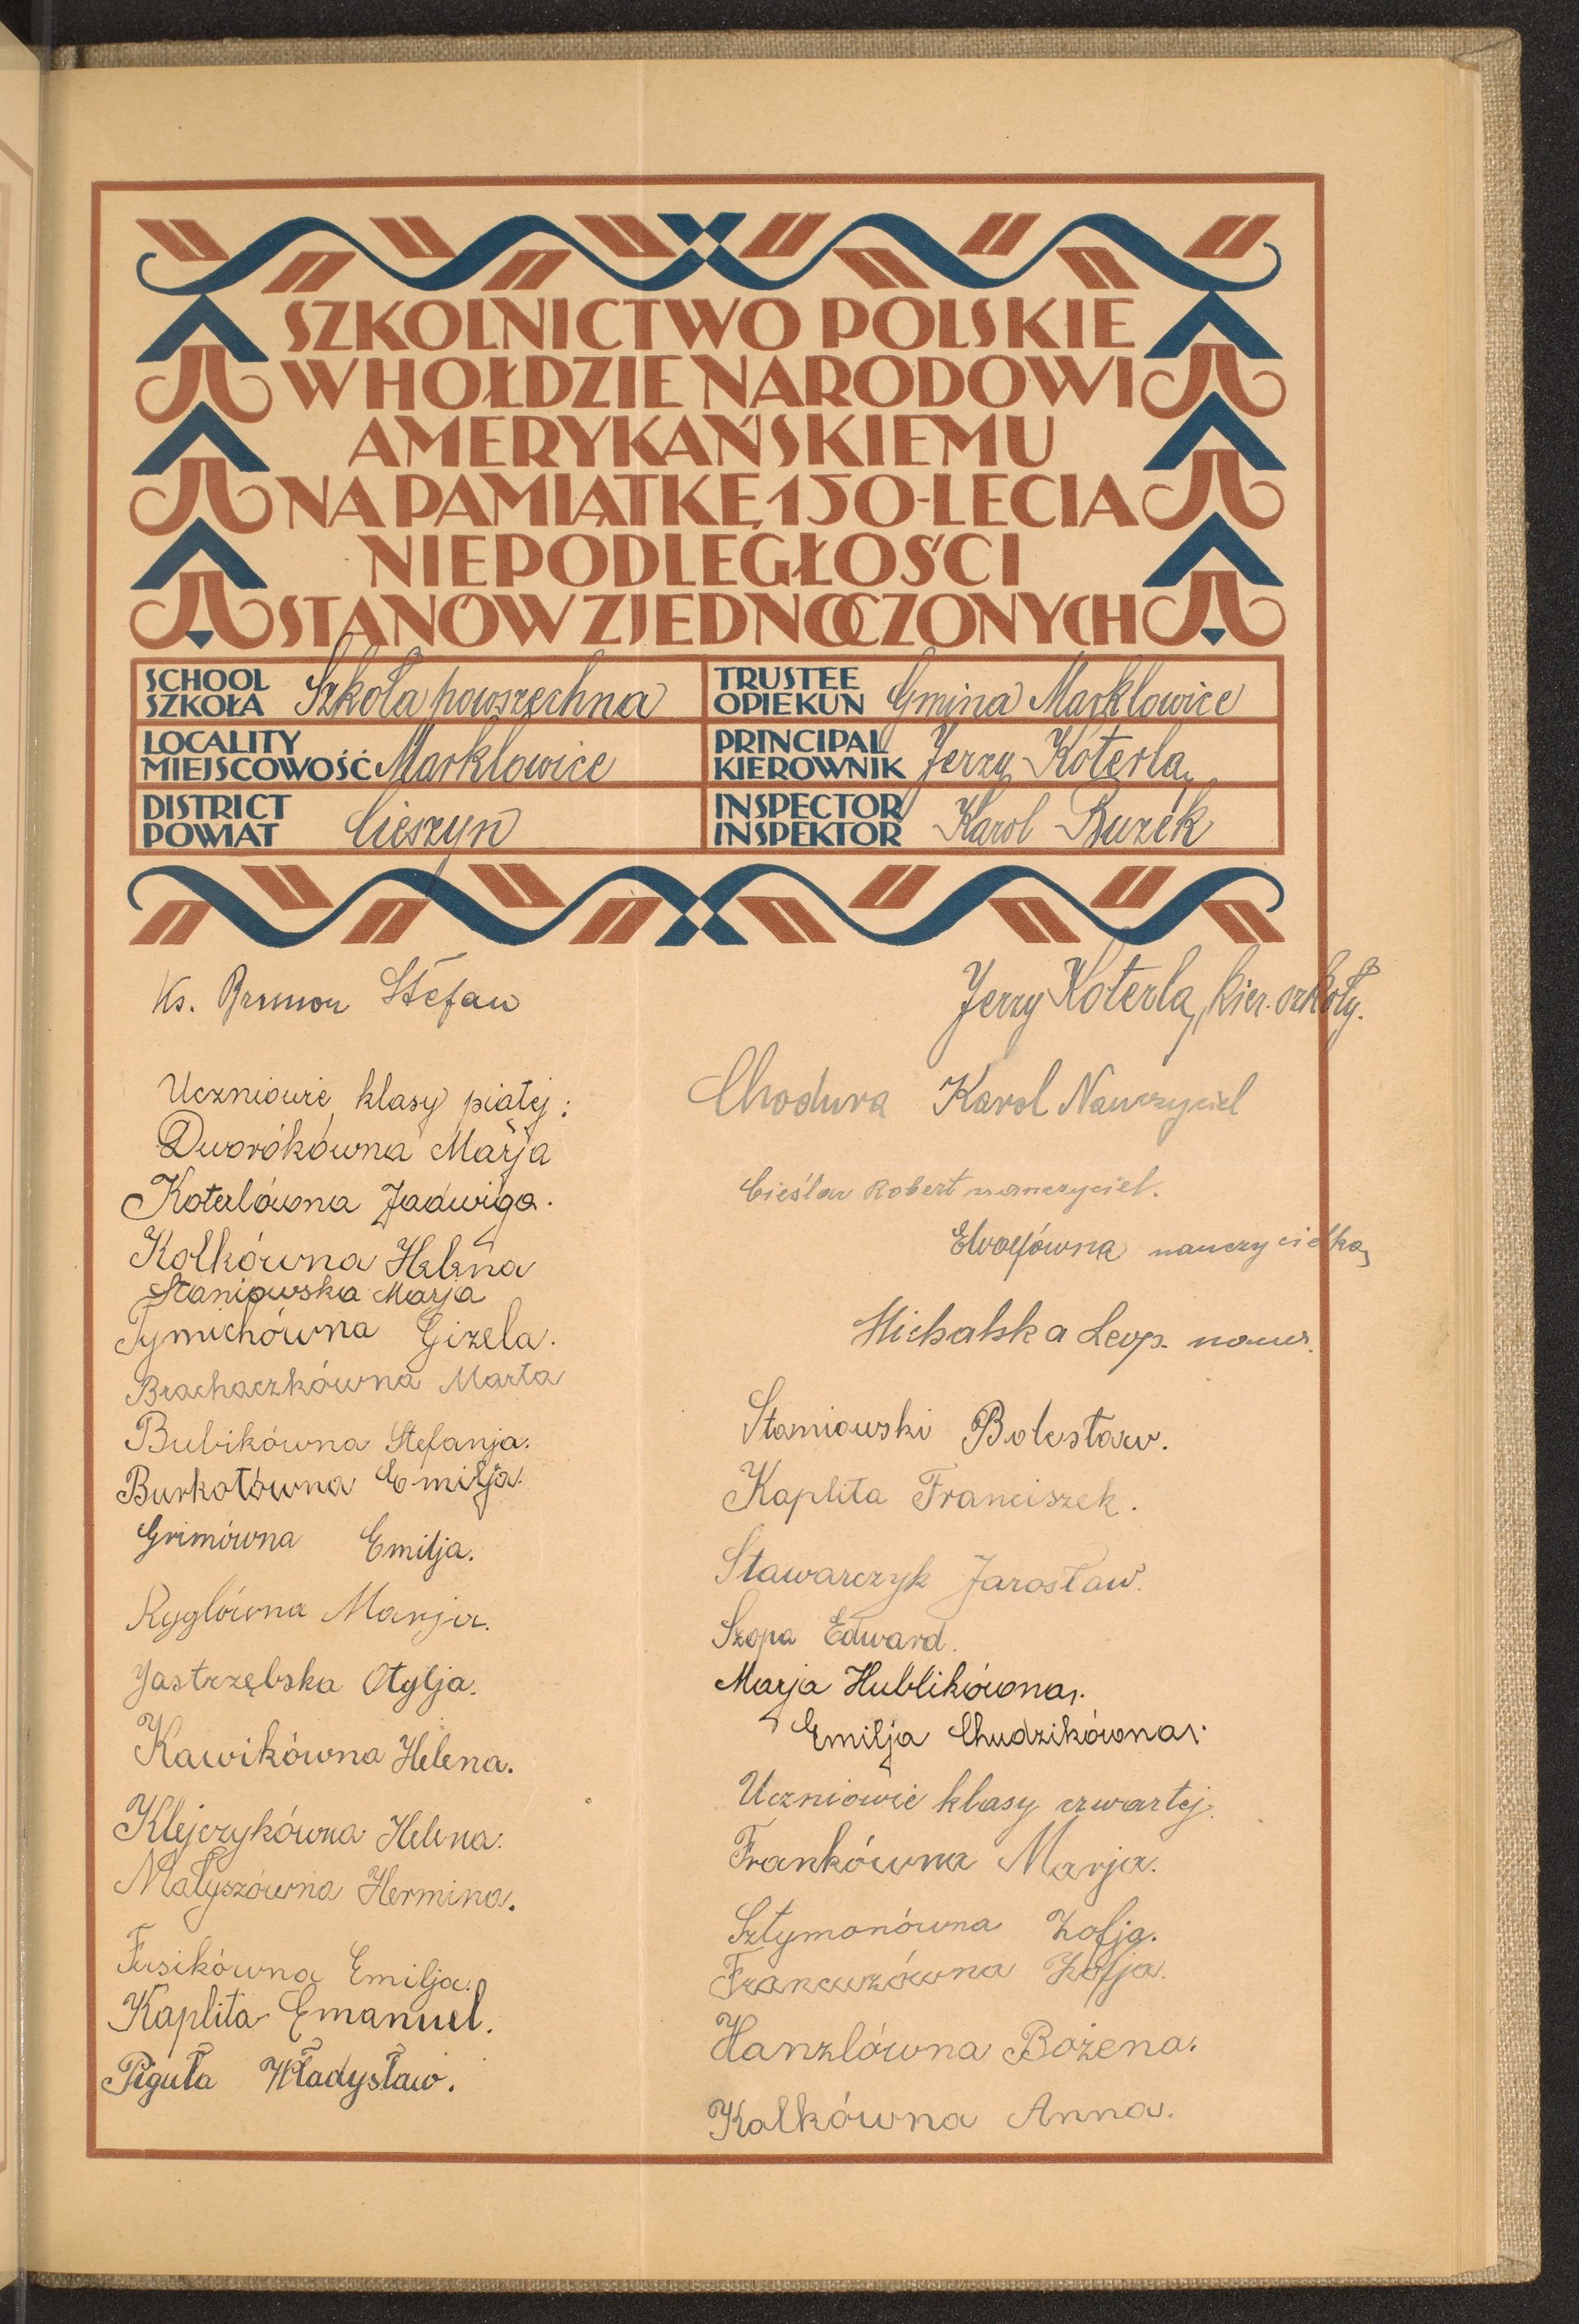 SZKOLNICTWO POLSKIE
W HOŁDZIE NARODOWI
AMERYKAŃSKIEMU
NA PAMIĄTKĘ 150-LECIA
NIEPODLEGŁOŚCI
STANÓW ZJEDNOCZONYCH
SCHOOL
SZKOŁA Szkoła powszechna
TRUSTEE
OPIEKUN Gmina Marklowice
LOCALITY
MIEJSCOWOŚĆ Marklowice
PRINCIPAL
KIEROWNIK Jerzy Koterla
DISTRICT
POWIAT Cieszyn
INSPECTOR
INSPEKTOR Karol Buzek
Ks. Stefan
Uczniowie klasy piątej:
Dworókówna Marja
Koterlówna Jadwiga.
Kolkówna Helena
Staniowska Marja
Tymichówna Gizela.
Brachaczkówna Marta
Bubikówna Stefanja.
Burkotówna Emilja.
Grimówna Emilja.
Ryglówna Marja.
Jastrzębska Otylja.
Kawikówna Helena.
Klejczykówna Helena.
Małyszówna Hermina.
Fusikówna Emilja.
Kaplita Emanuel.
Piguła Władysław.
Jerzy Koterla, kier. szkoły.
Chodura Karol Nauczyciel
Cieślar Robert nauczyciel.
nauczycielka
Michalska Leop. naucz.
Staniowski Bolesław.
Kaplita Franciszek.
Stawarczyk Jarosław.
Szopa Edward.
Marja Hublikówna.
Emilja Chudzikówna.
Uczniowie klasy czwartej.
Frankówna Marja.
Sztymonówna Zofja.
Francuzówna Zofja.
Hanzlówna Bożena.
Kolkówna Anna.